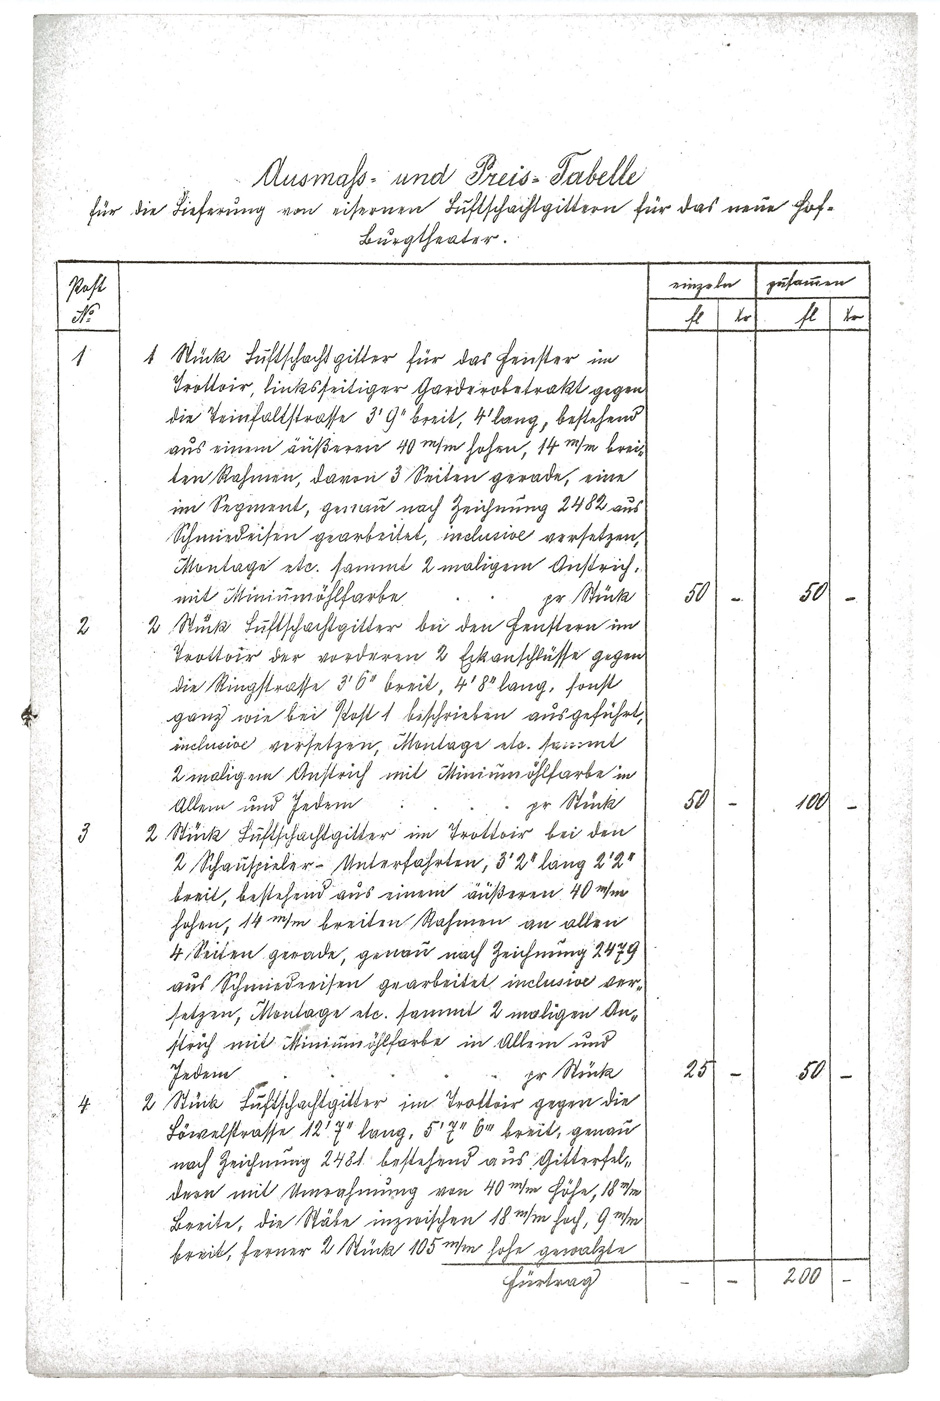 Ausmass- und Preis-Tabelle
für die Lieferung von eisernen Luftschachtgittern für das neue Hof-
Burgtheater.
Post No einzeln zusammen
fl kr fl kr
1 1 Stück Luftschachtgitter für das Fenster im
Trottoir, linksseitiger Garderobetrakt gegen
die Teinfaltstrasse 3' 9" breit, 4' lang, bestehend
aus einem äußeren 40 m/m hohen, 14 m/m brei-
ten Rahmen, davon 3 Seiten gerade, eine
im Segment, genau nach Zeichnung 2482 aus
Schmiedeisen gearbeitet, inclusive versetzen,
Montage etc. sammt 2 maligem Anstrich,
mit Miniumöhlfarbe . . pr Stück 50 - 50 -
2 2 Stück Luftschachtgitter bei den Fenstern im
Trottoir der vorderen 2 Eckanschlüsse gegen
die Ringstrasse 3' 6" breit, 4' 8" lang, sonst
ganz wie bei Post 1 beschrieben ausgeführt,
inclusive versetzen, Montage etc. sammt
2 maligem Anstrich mit Miniumöhlfarbe in
Allem und Jedem . . . . pr Stück 50 - 100 -
3 2 Stück Luftschachtgitter im Trottoir bei den
2 Schauspieler-Unterfahrten, 3' 2" lang 2' 2"
breit, bestehend aus einem äußeren 40 m/m
hohen, 14 m/m breiten Rahmen an allen
4 Seiten gerade, genau nach Zeichnung 2479
aus Schmiedeeisen gearbeitet inclusive ver-
setzen, Montage etc. sammt 2 maligen An-
strich mit Miniumöhlfarbe in Allem und
Jedem . . . . . pr Stück 25 - 50 -
4 2 Stück Luftschachtgitter im Trottoir gegen die
Löwelstrasse 12' 7" lang, 5' 7" 6''' breit, genau
nach Zeichnung 2481 bestehend aus Gitterfel-
dern mit Umrahmung von 40 m/m Höhe, 18 m/m
Breite, die Stäbe inzwischen 18 m/m hoch, 9 m/m
breit, ferner 2 Stück 105 m/m hohe gewalzte
Fürtrag - - 200 -